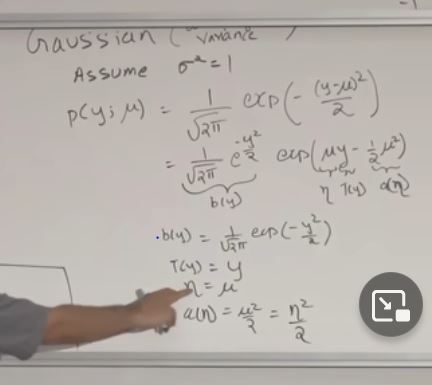 Gaussian ( variance )
Assume σ² = 1
p(y; μ) = 1/√2π exp(- (y-μ)²/2)
= 1/√2π e^(-y²/2) exp(μy - 1/2 μ²)
b(y) η T(y) a(η)
b(y) = 1/√2π exp(- y²/2)
T(y) = y
η = μ
a(η) = μ²/2 = η²/2